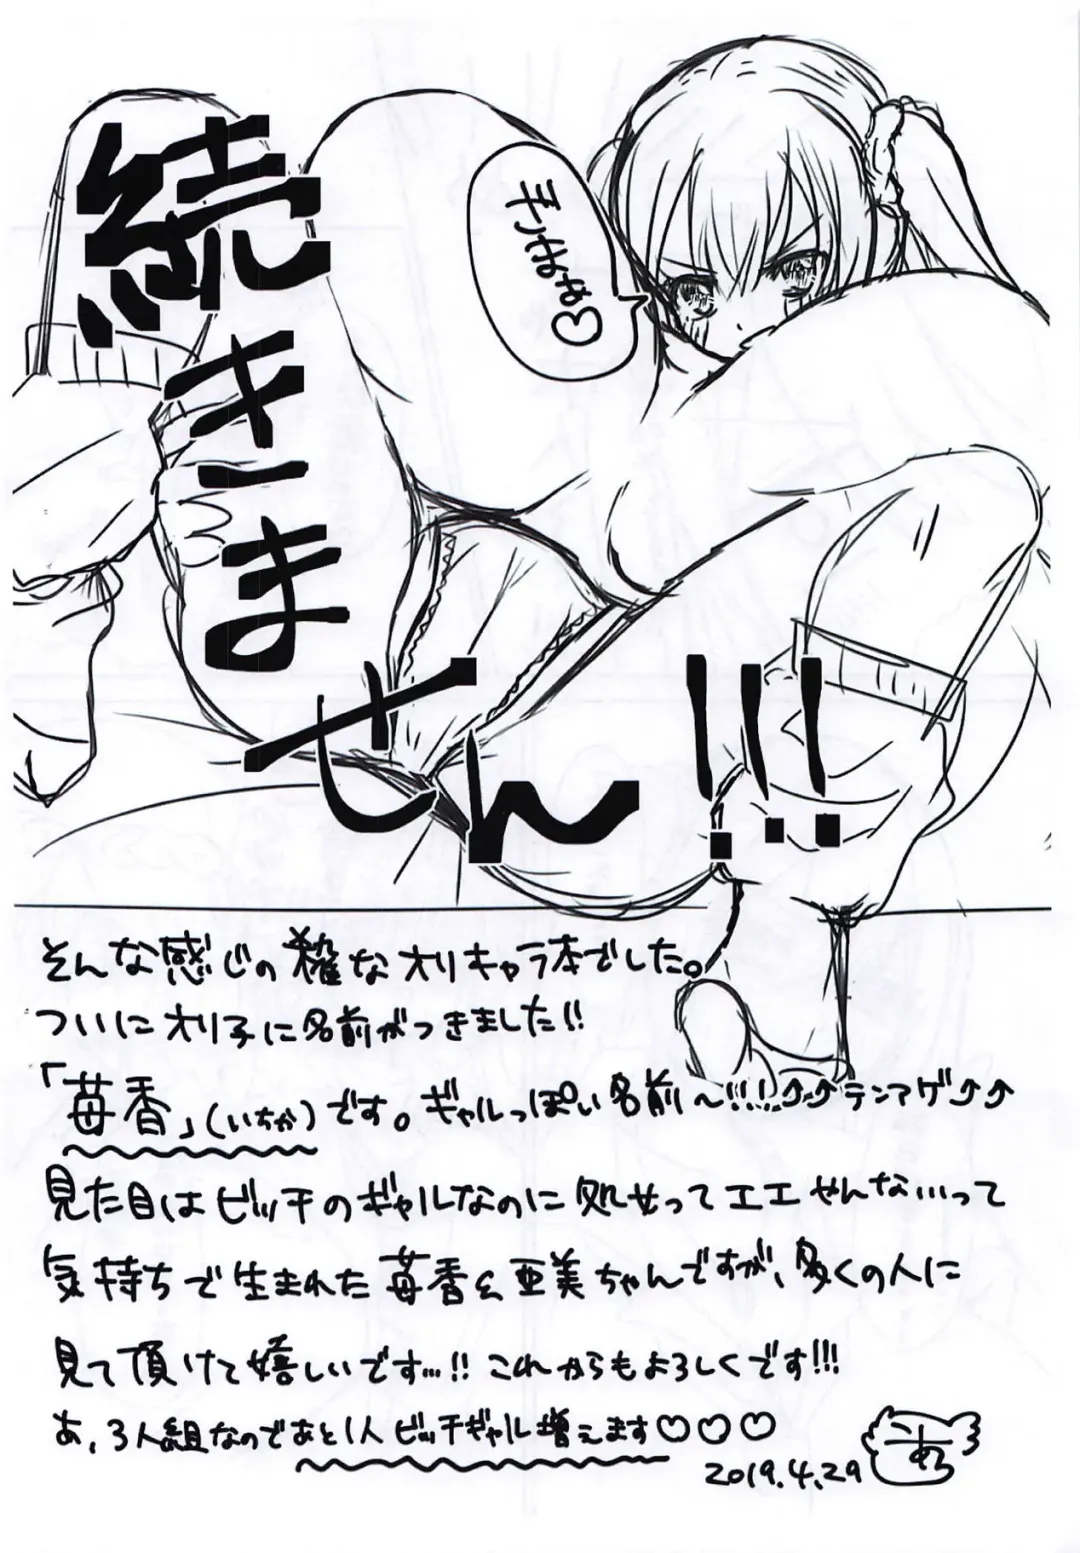 続きません!!!
ぎまぉ♡
そんな感じの雑なオリキャラ本でした。
ついにオリ子に名前がつきました!!
「苺香」(いちか)です。ギャルっぽい名前〜!!!⤴⤴テンアゲ⤴⤴
見た目はビッチのギャルなのに処女ってエエやんな…って
気持ちで生まれた苺香&亜美ちゃんですが、多くの人に
見て頂けて嬉しいです…!! これからもよろしくです!!!
あ、3人組なのであと1人ビッチギャル増えます♡♡♡
2019.4.29